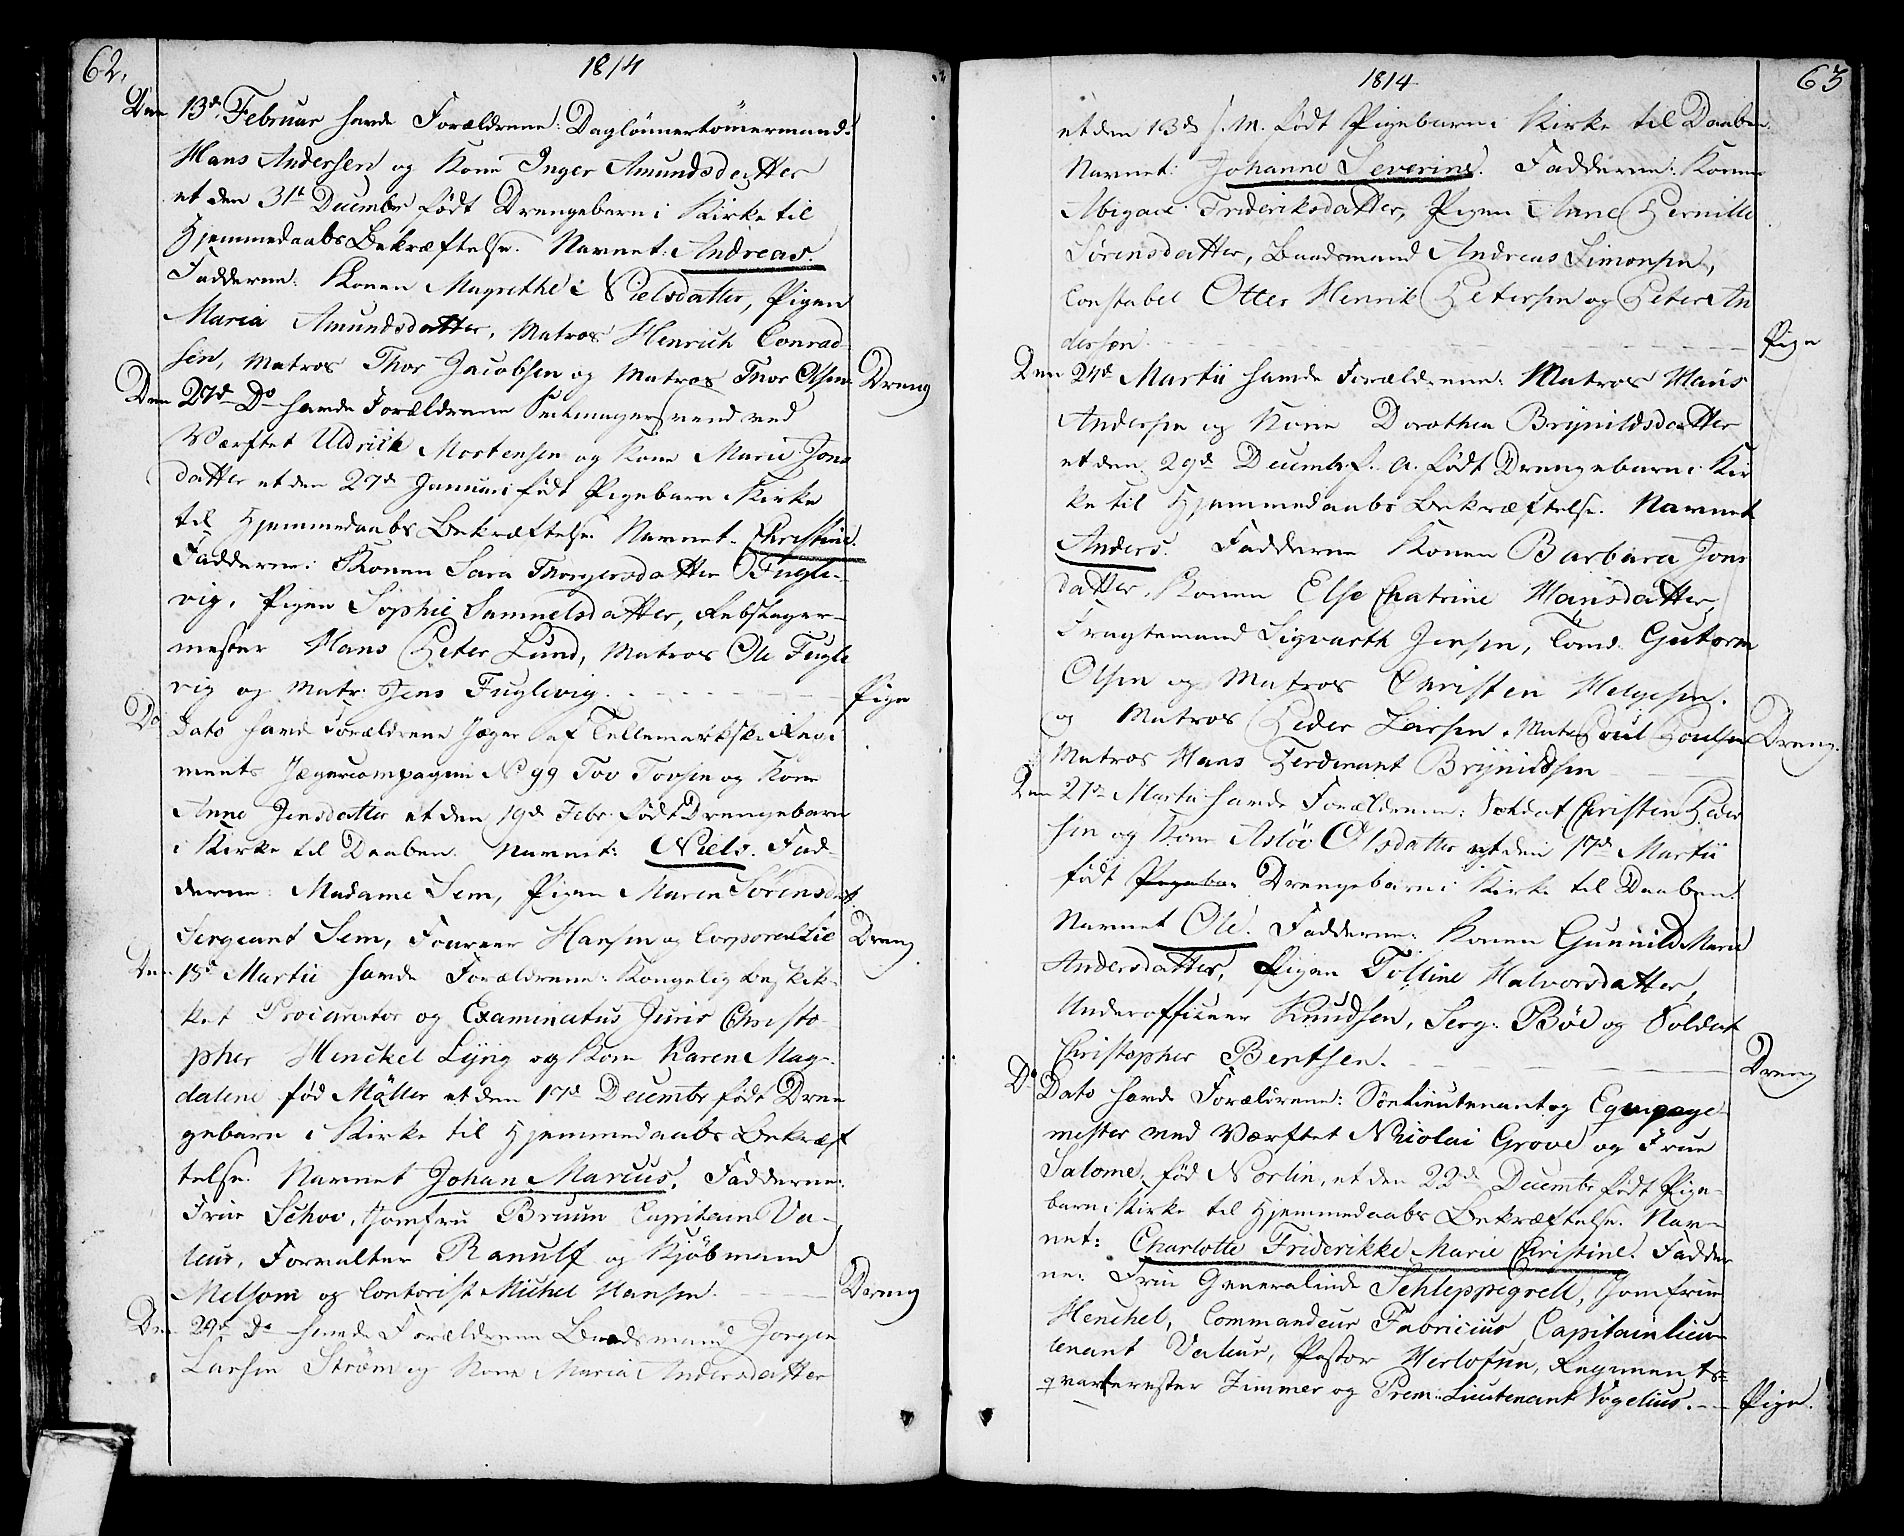 62.
1814
Den 13d. Februar havde Forældrene: Daglönnertömermand
Hans Andersen og Kone Inger Amundsdatter
et den 31t Decembr födt Drengebarn i Kirke til
HjemmedaabsBekræftelse. Navnet: Andreas.
Fadderne: Konen Magrethe Nielsdatter, Pigen
Maria Amundsdatter, Matros Henrich Conrad-
sen, Matros Thor Jacobsen og Matros Thor Olsen Dreng
Den 27d Do havde Forældrene Seilmagersvend ved
Værftet Uldrich Mortensen og Kone Marie Jons
datter et den 27d Januari födt Pigebarn i Kirke
til Hjemmedaabs Bekræftelse Navnet. Christine.
Fadderne: Konen Sara Thorgersdatter Fugle-
vig, Pigen Sophie Samuelsdatter, Rebslager-
mester Hans Peter Lund, Matros Ole Fugle
vig og Matr: Jens Fuglevig. Pige
Do Dato havde Forældrene Jæger af Tellemarkske Regi
ments Jægercompagnie No 99 Tov Tovsen og Kone
Anne Jensdatter et den 19d Febr. födt Drengebarn
i Kirke til Daaben. Navnet: Niels. Fad-
derne: Madame Sem, Pigen Maren Sörensdat.
Sergeant Sem, Foureer Hansen og Corporal Lie Dreng
Den 18d Martii havde Forældrene: Kongelig beskik-
ket Procurator og Examinatus Juris Christo-
pher Henckel Lÿng og Kone Karen Mag-
dalene född Möller et den 17d Decembr födt Dren
gebarn i Kirke til Hjemmedaabs Bekræf
telse. Navnet Johan Marcus. Fadderne:
Frue Schov, Jomfru Bruun Capitain Va-
leur, Forvalter Ranulf og Kjöbmand
Melsom og Contorist Michel Hansen. Dreng
Den 24d Do havde Forældrene Baadsmand Jörgen
Larsen Ström og Kone Maria Andersdatter
1814
63
et den 13d f. M. födt Pigebarn i Kirke til Daaben
Navnet: Johanne Severine. Fadderne: Konen
Abigael Frideriksdatter, Pigen Anne Pernille
Sörensdatter, Baadsmand Andreas Simonsen,
Constabel Otter Henrik Petersen og Peter An
dersen Pige
Den 24d Martii havde Forældrene: Matros Hans
Andersen og Kone Dorothea Brÿnildsdatter
et den 29d Decembr f. A. födt Drengebarn i Kir
ke til Hjemmedaabs Bekræftelse. Navnet
Anders. Fadderne Konen Barbara Jons
datter, Konen Else Chatrine Hansdatter,
Fragtemand Sigvarth Jensen, Tomd. Gutorm
Olsen og Matros Christen Helgesen.
og Matros Peder Larsen, Matr Poul Poulsen Dreng
Matros Hans Ferdinant Brÿnildsen
Den 27de Martii havde Forældrene: Soldat Christen Peder
sen og Kone Aslöv Olsdatter et den 17d Martii
födt Pigeba: Drengebarn i Kirke til Daaben.
Navnet Ole. Fadderne: Konen Gunnild Marie
Andersdatter, Pigen Tolline Halvorsdatter,
Underofficeer Knudsen, Serg: Böe og Soldat
Christopher Bentsen. Dreng
Do Dato havde Forældrene: Sölieutenant og Equipage-
mester ved Værftet Nicolai Grove og Frue
Salome, född Norlin, et den 22d Decembr födt Pige-
barn i Kirke til Hjemmedaabs Bekræftelse. Nav-
net: Charlotte Friderikke Marie Christine. Fadder
ne: Frue Generalinde Schleppegrell, Jomfrue
Henchel, Commandeur Fabricius, Capitainlieu-
tenant Valeur, Pastor Herlofsen, Regiments-
qvartermester Zimmer og Prem: Lieutenant Vogelius. Pige.